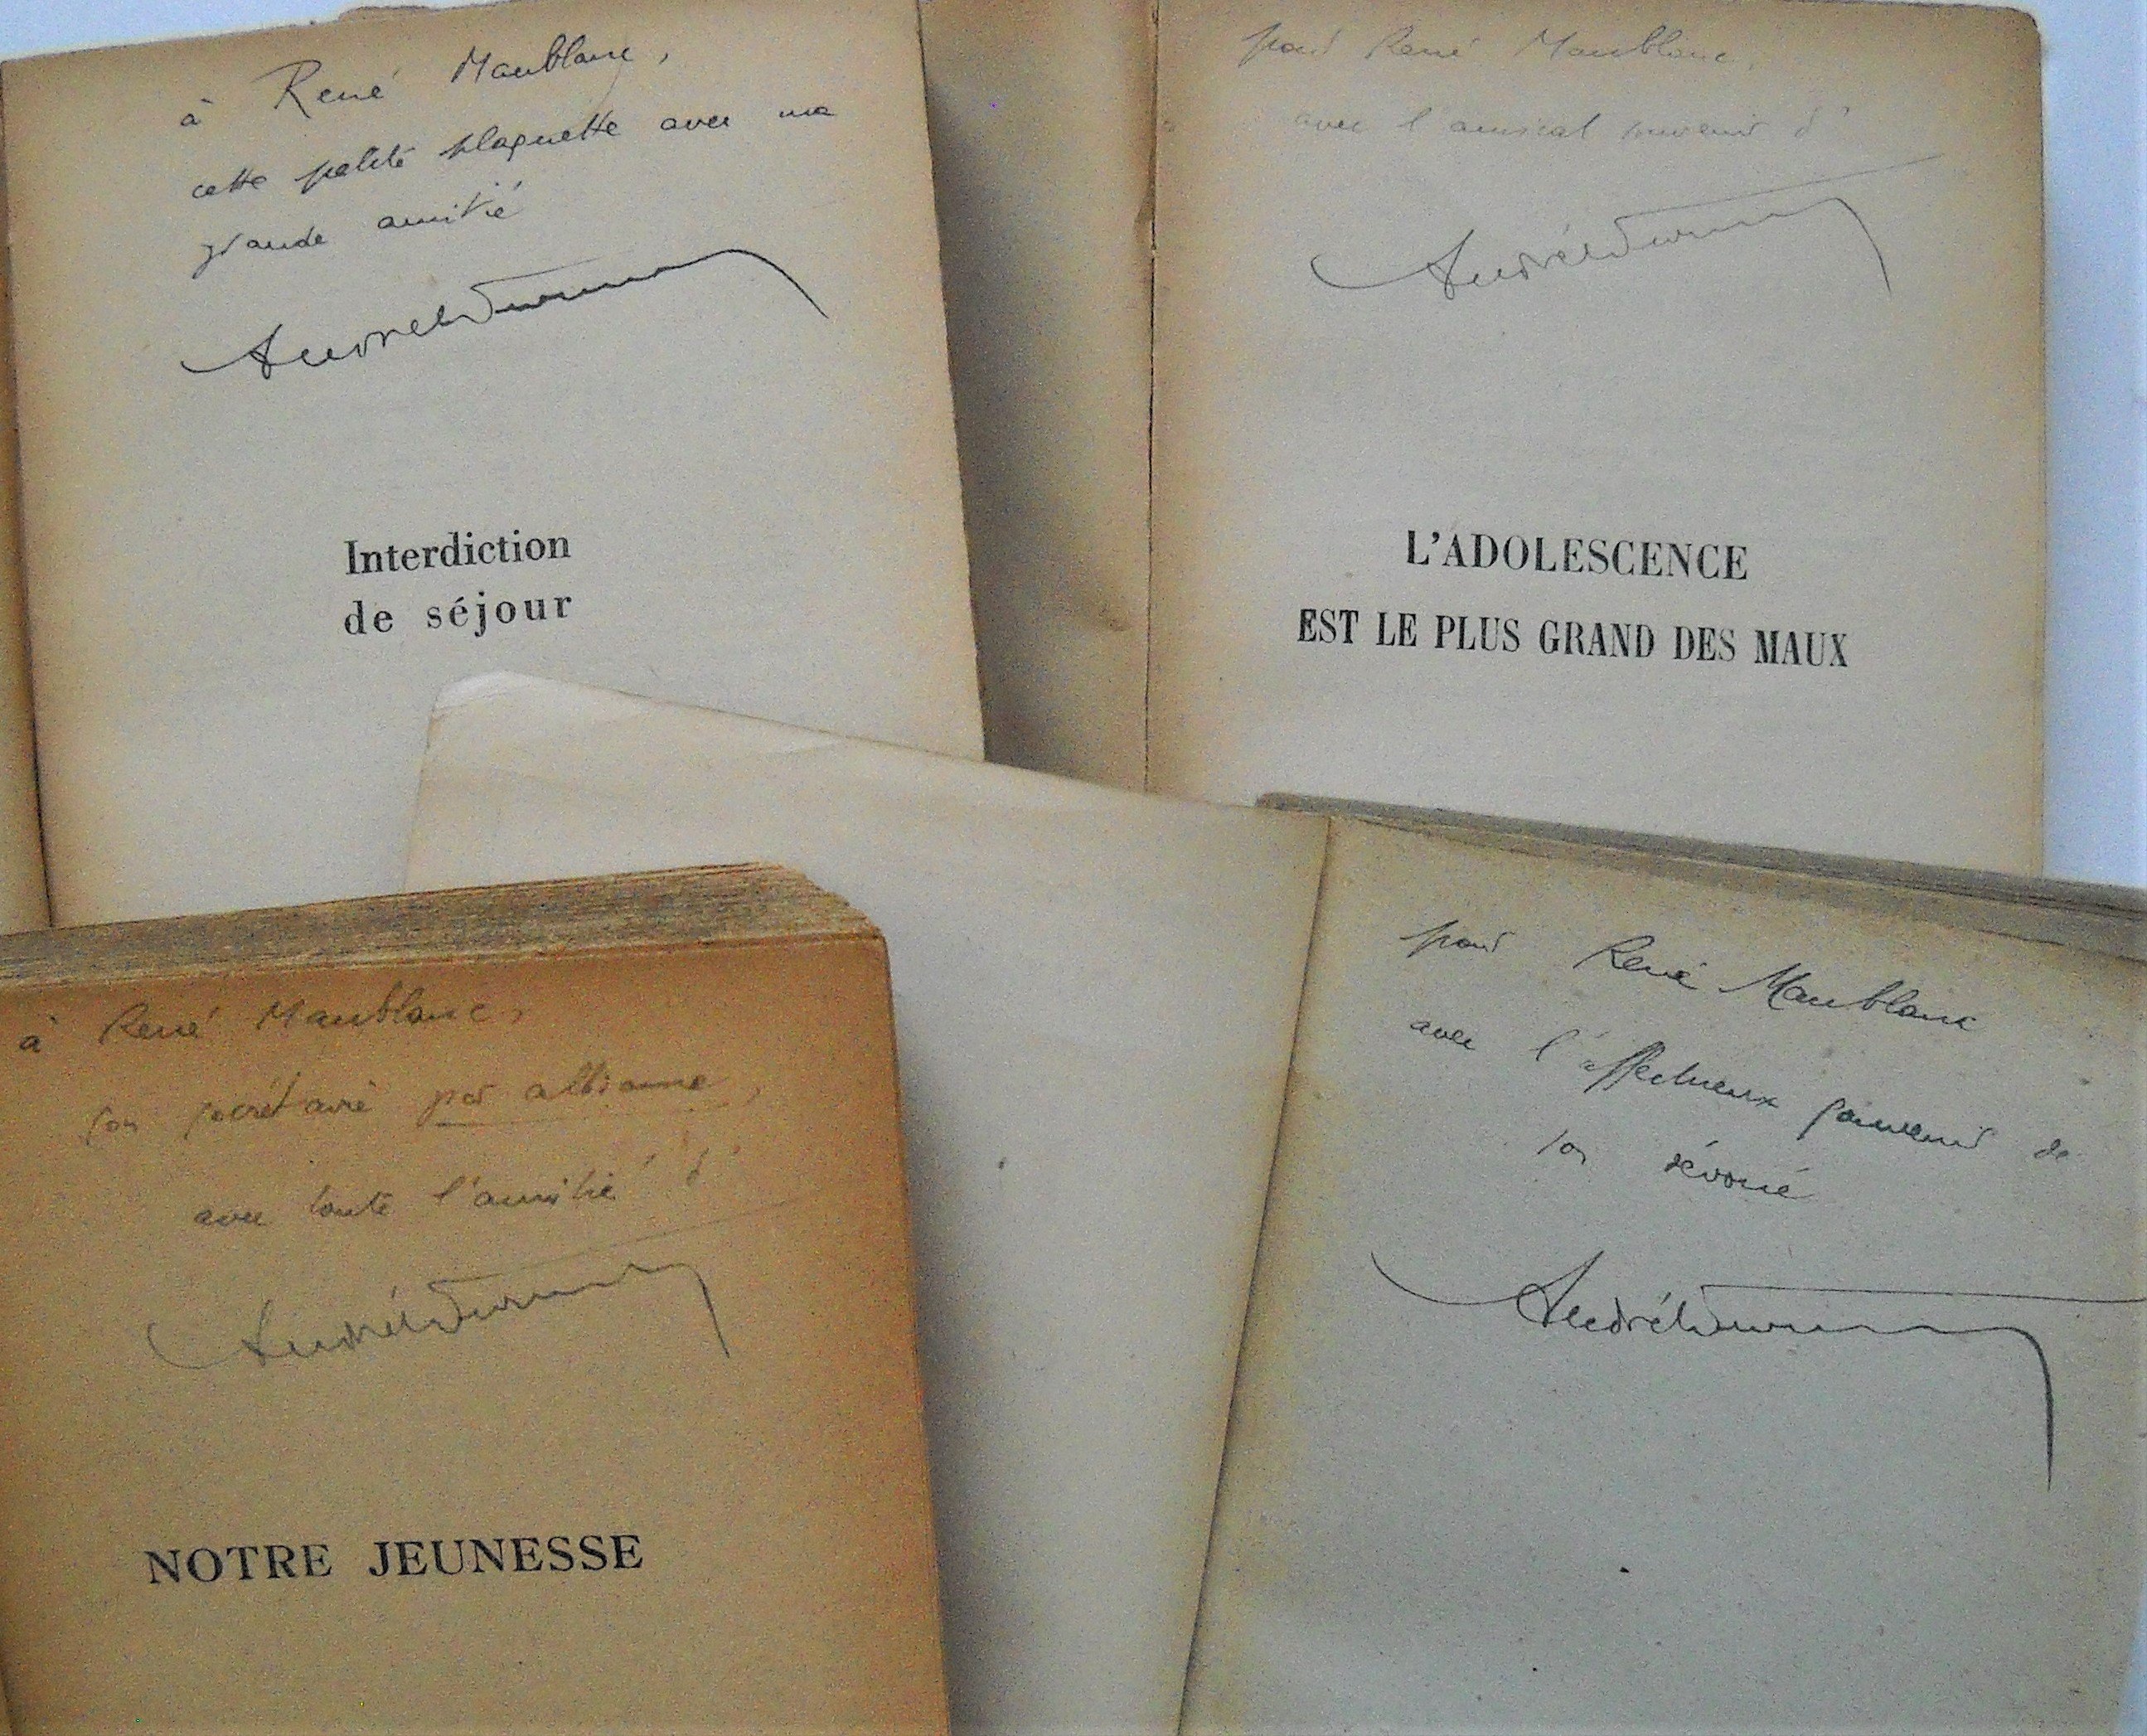 à René Maublanc,
cette petite plaquette avec ma
grande amitié
Interdiction
de séjour
pour René Maublanc,
avec l'amical souvenir d'
L'ADOLESCENCE
EST LE PLUS GRAND DES MAUX
à René Maublanc,
son secrétaire par
avec toute l'amitié d'
NOTRE JEUNESSE
pour René Maublanc
avec l'affectueux souvenir de
son dévoué